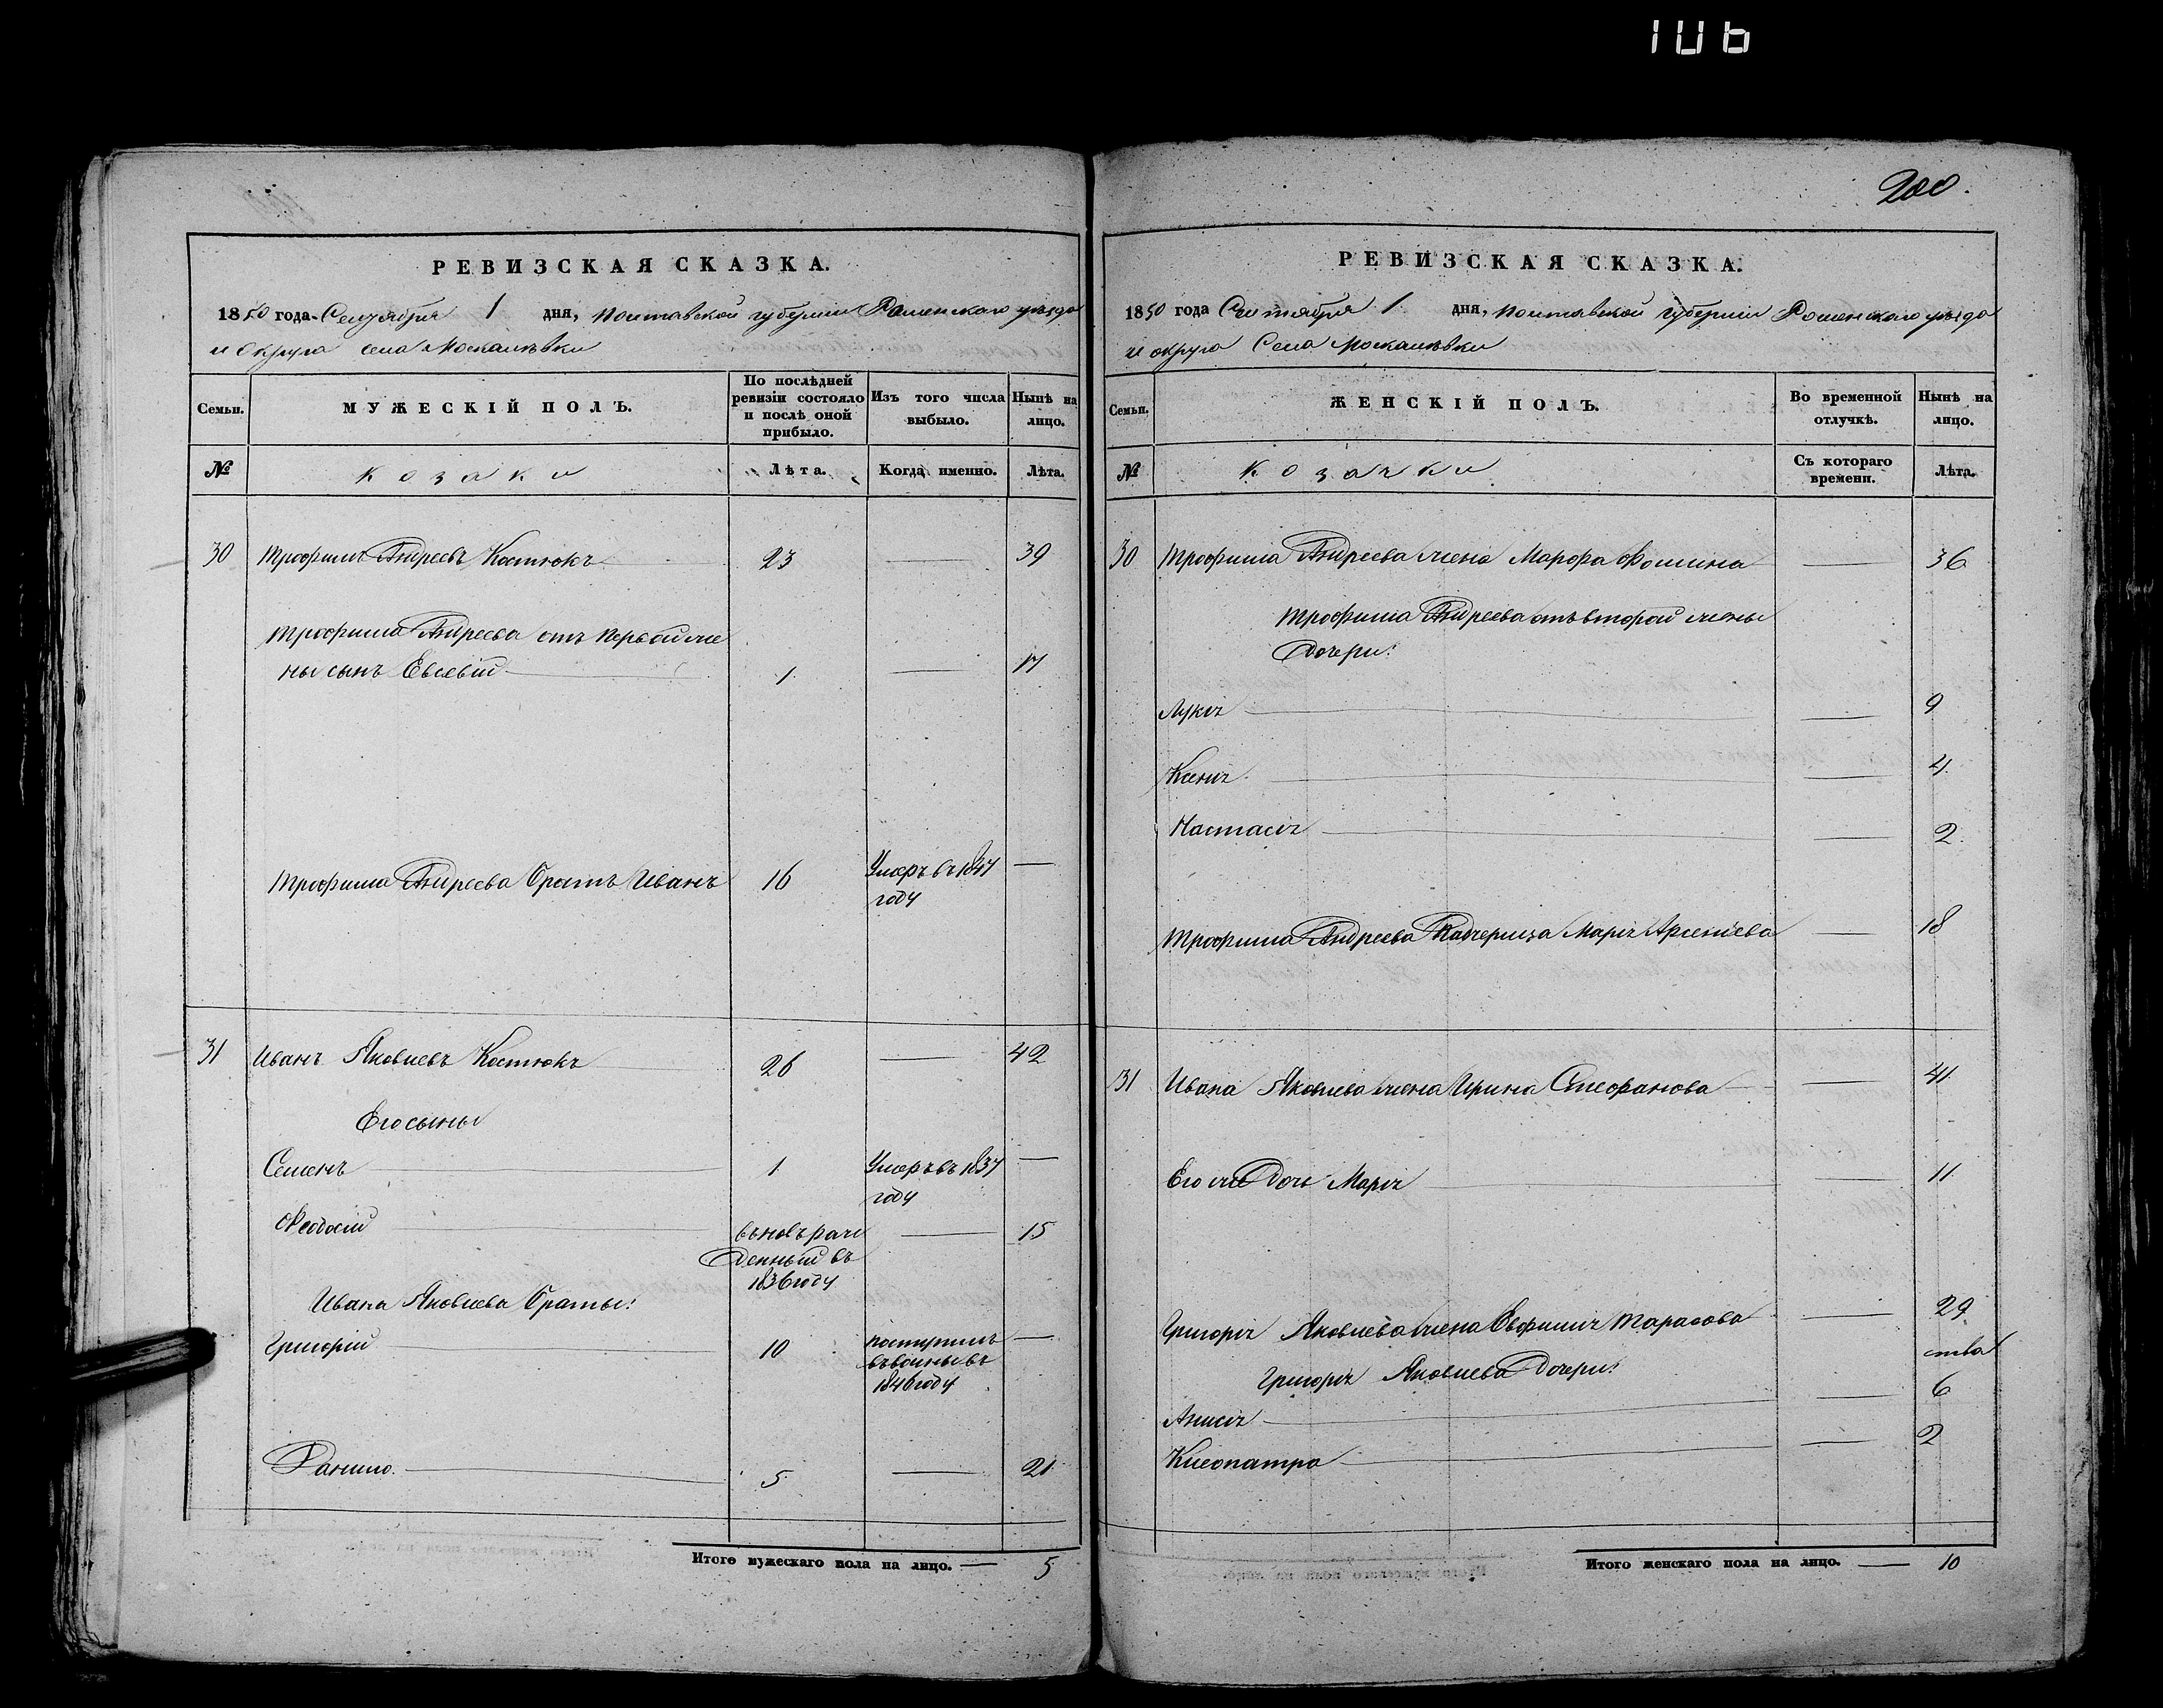 106
200.
РЕВИЗСКАЯ СКАЗКА.
1850 года Сентября 1 дня, Полтавской губернии Роменского уѣзда
и округа села Москалѣвки
Семьи.
МУЖЕСКІЙ ПОЛЪ.
По послѣдней ревизіи состояло и послѣ оной прибыло.
Изъ того числа выбыло.
Нынѣ на лицо.
№
козаки
Лѣта.
Когда именно.
Лѣта.
30 Трофимъ Андреевъ Костюкъ 23 — 39
Трофима Андреева отъ первой же
ны сынъ Евсевій 1 — 17
Трофима Андреева Братъ Иванъ 16 Умеръ въ 1847 —
году
31 Иванъ Яковлевъ Костюкъ 26 — 42
Его сыны
Семенъ 1 Умеръ въ 1837 —
году
Феодосій вновь раж — 15
денный въ
1836 году
Ивана Яковлева Браты:
Григорій 10 поступилъ —
въ воины въ
1846 году
Данило. 5 — 21
Итого мужескаго пола на лицо. — 5
РЕВИЗСКАЯ СКАЗКА.
1850 года Сентября 1 дня, Полтавской губернии Роменского уѣзда
и округа Села Москалѣвки
Семьи.
ЖЕНСКІЙ ПОЛЪ.
Во временной отлучкѣ.
Нынѣ на лицо.
№
козачки
Съ котораго времени.
Лѣта.
30 Трофима Андреева жена Марфа Фомина — 36
Трофима Андреева отъ второй жены
Дочери:
Лукія — 9
Ксенія — 4
Настасія — 2
Трофима Андреева Падчерица Марія Арсеніева — 18
31 Ивана Яковлева жена Ирина Стефанова — 41
Его же Дочь Марія — 11
Григорія Яковлева жена Евфимія Тарасова — 29
Григорія Яковлева Дочери:
Анисія — 6
Клеопатра — 2
Итого женскаго пола на лицо. — 10